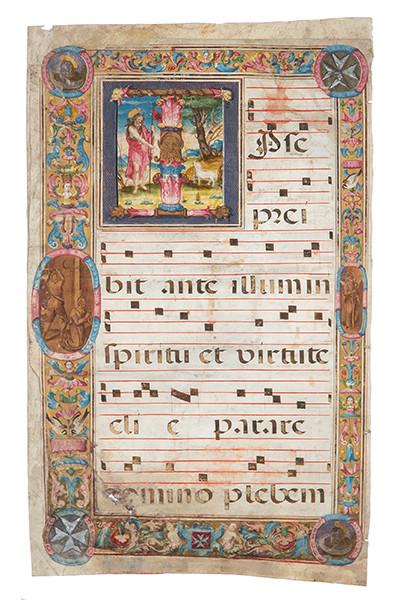 IPse
prei
bit ante illumin
spiritu et virtute
eli e parare
domino plebem